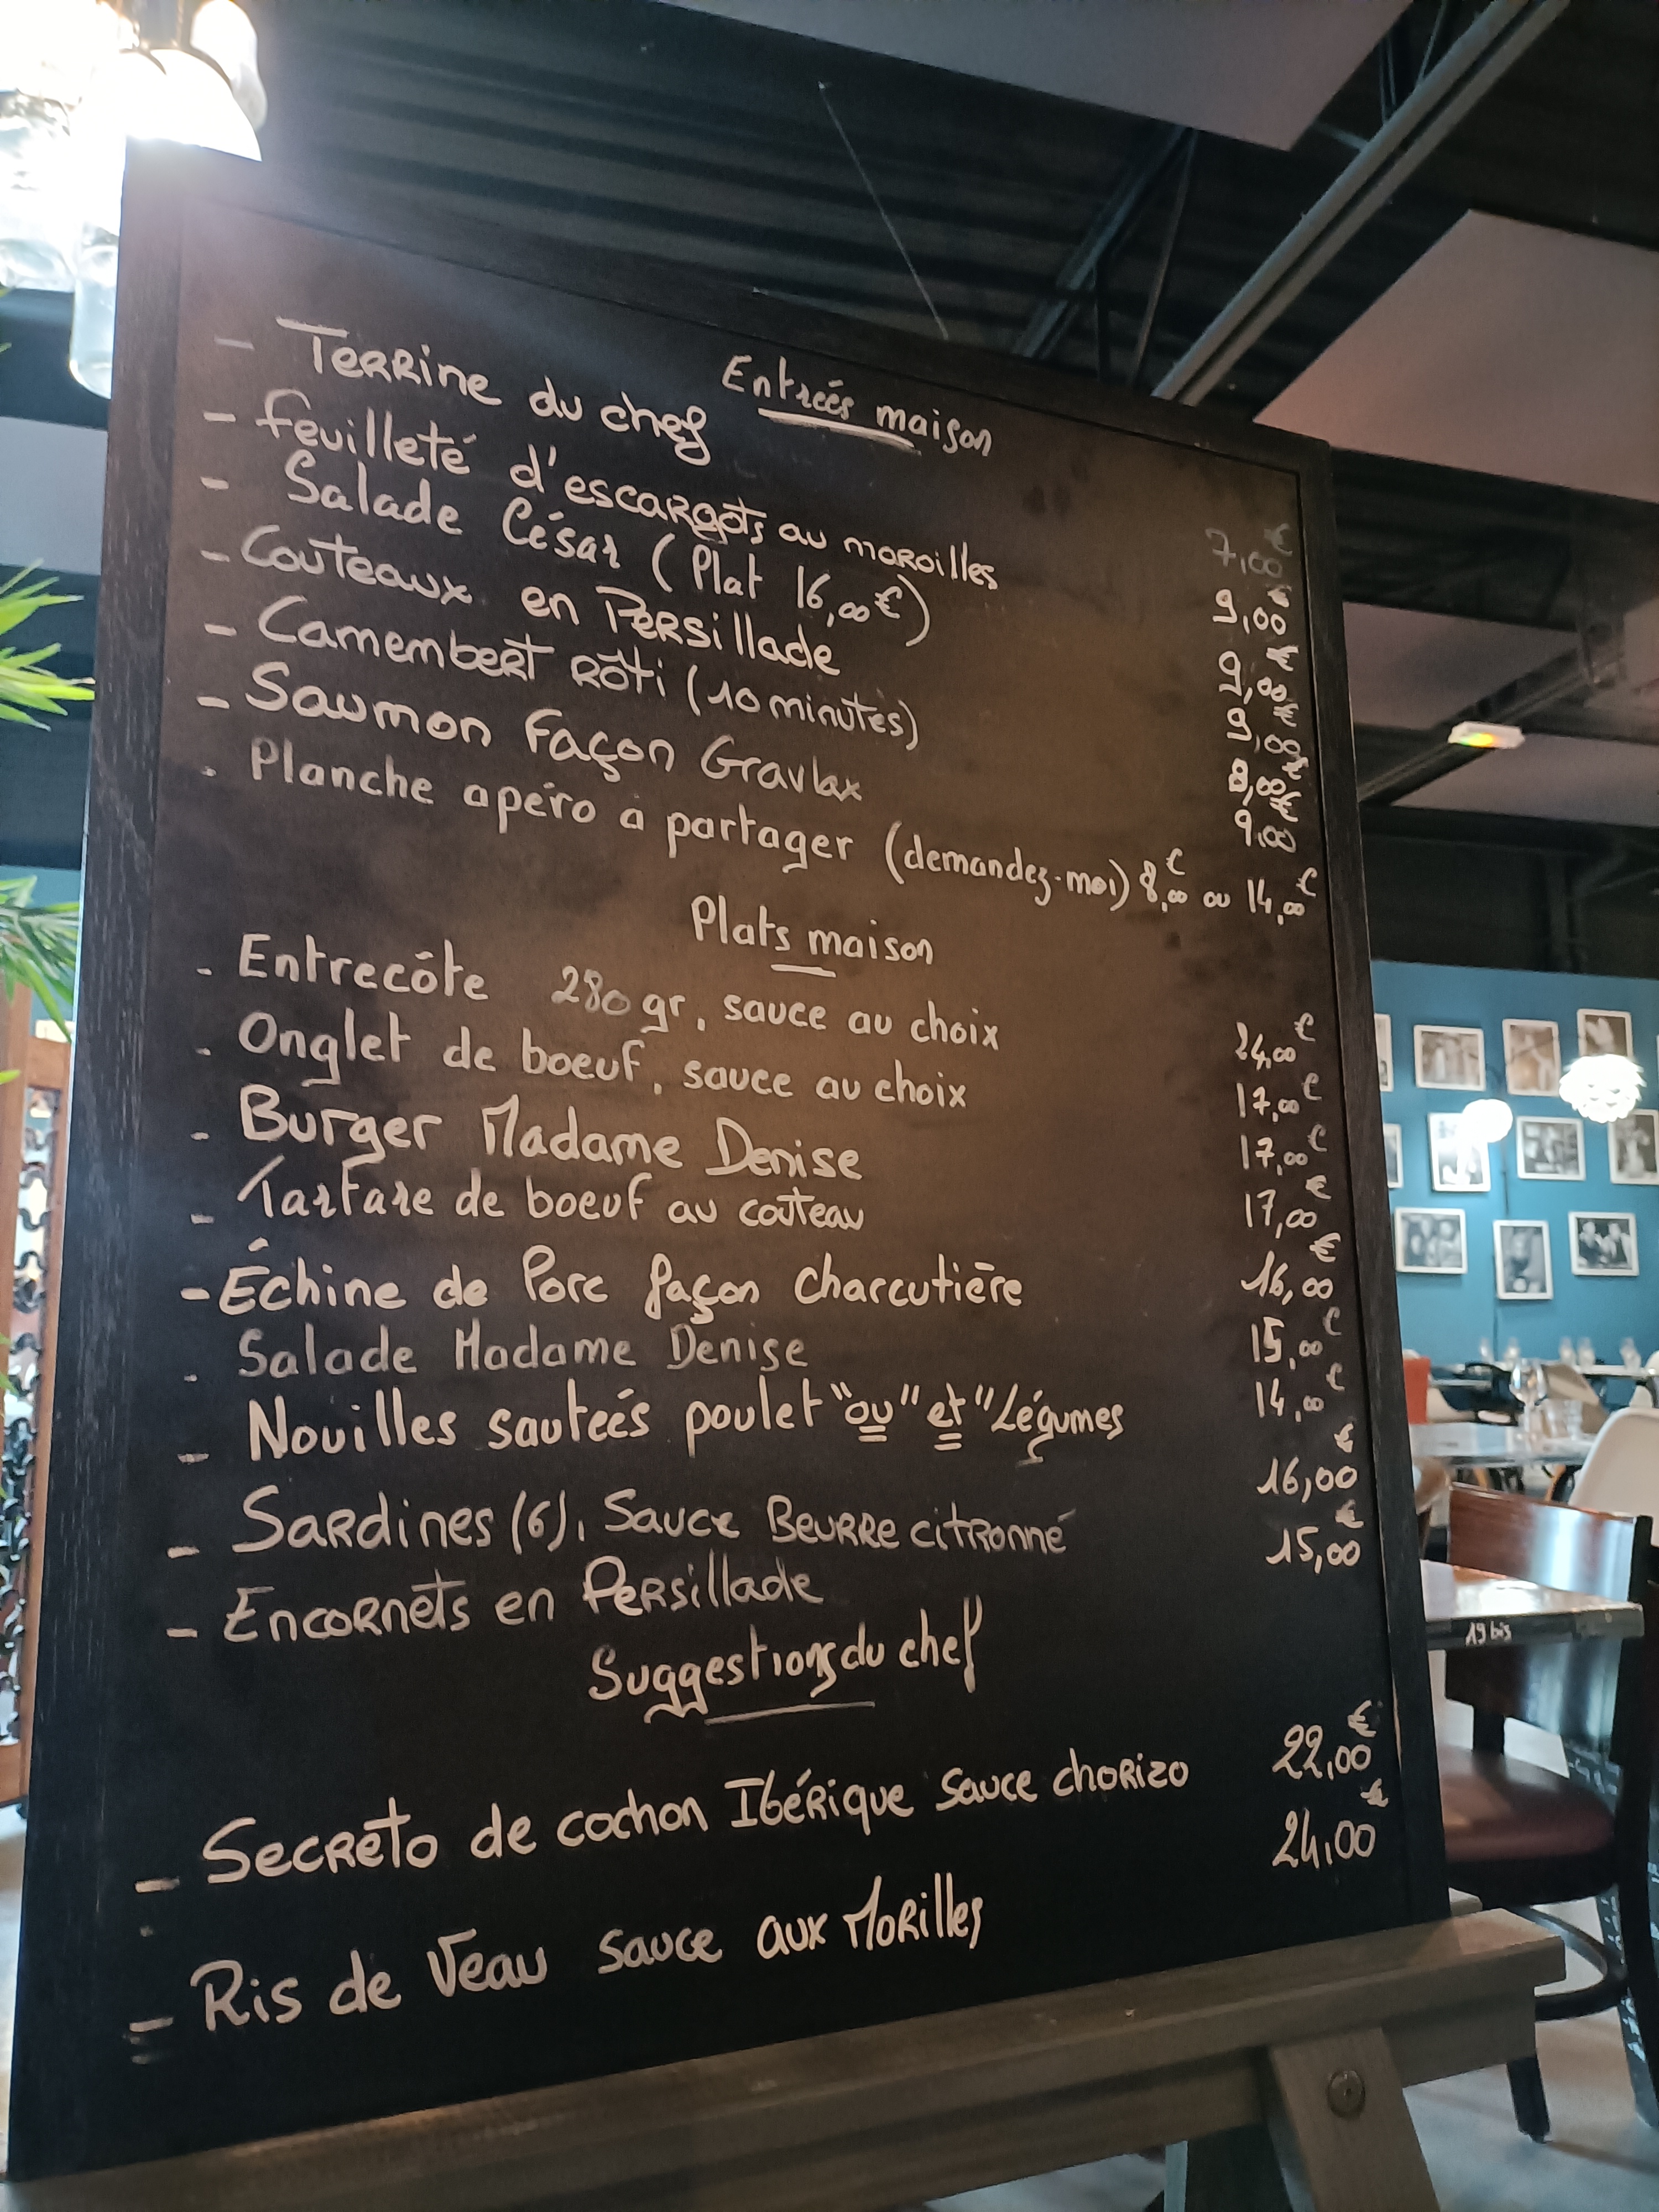 Entreés maison
- Terrine du chef 7,00€
- feuilleté d'escargots au maroilles 9,00€
- Salade César (Plat 16,00€) 9,00€
- Couteaux en Persillade 9,00€
- Camembert rôti (10 minutes) 8,00€
- Saumon Façon Gravlax 9,00€
- Planche apéro a partager (demandez-moi) 8,00€ ou 14,00€
Plats maison
- Entrecôte 280 gr, sauce au choix 24,00€
- Onglet de boeuf, sauce au choix 17,00€
- Burger Madame Denise 17,00€
- Tartare de boeuf au couteau 17,00€
- Échine de Porc façon charcutière 16,00€
- Salade Madame Denise 15,00€
- Nouilles sauteés poulet "ou" et "Légumes 14,00€
- Sardines (6), Sauce Beurre citronné 16,00€
- Encornets en Persillade 15,00€
Suggestions du chef
- Secreto de cochon Ibérique sauce chorizo 22,00€
- Ris de Veau sauce aux Morilles 24,00€
19 bis